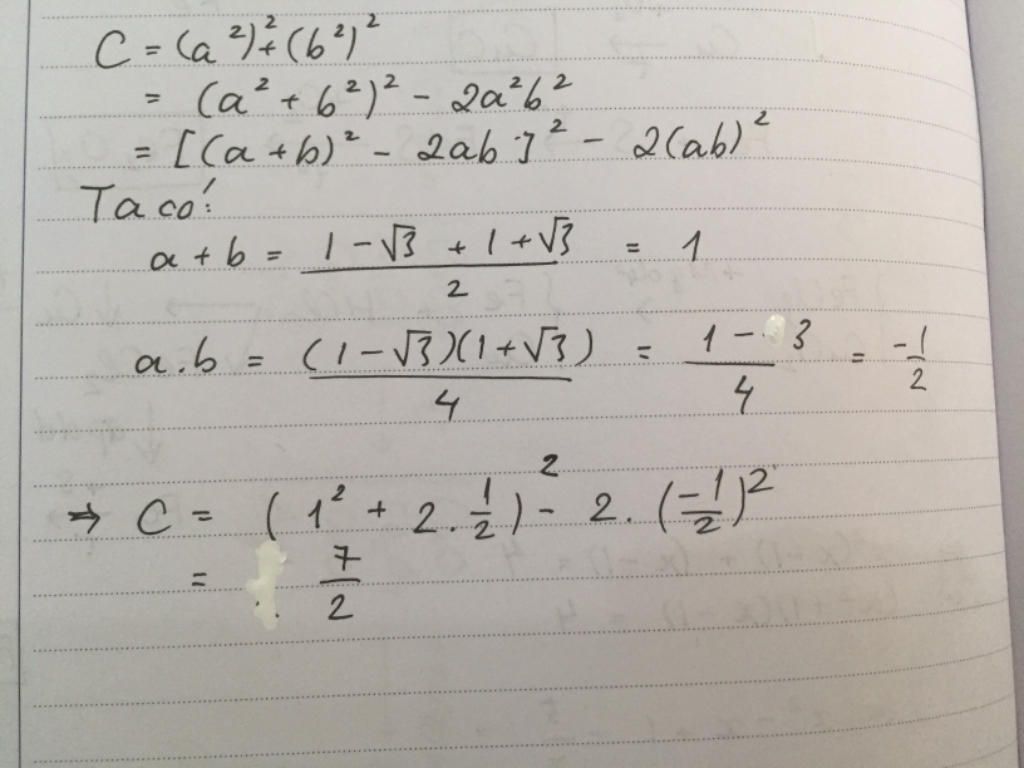 C = (a²)² + (b²)²
= (a² + b²)² - 2a²b²
= [(a + b)² - 2ab]² - 2(ab)²
Ta có:
a + b = (1 - √3 + 1 + √3)/2 = 1
a.b = (1 - √3)(1 + √3)/4 = (1 - 3)/4 = -1/2
⇒ C = (1² + 2. 1/2)² - 2. (-1/2)²
= 7/2